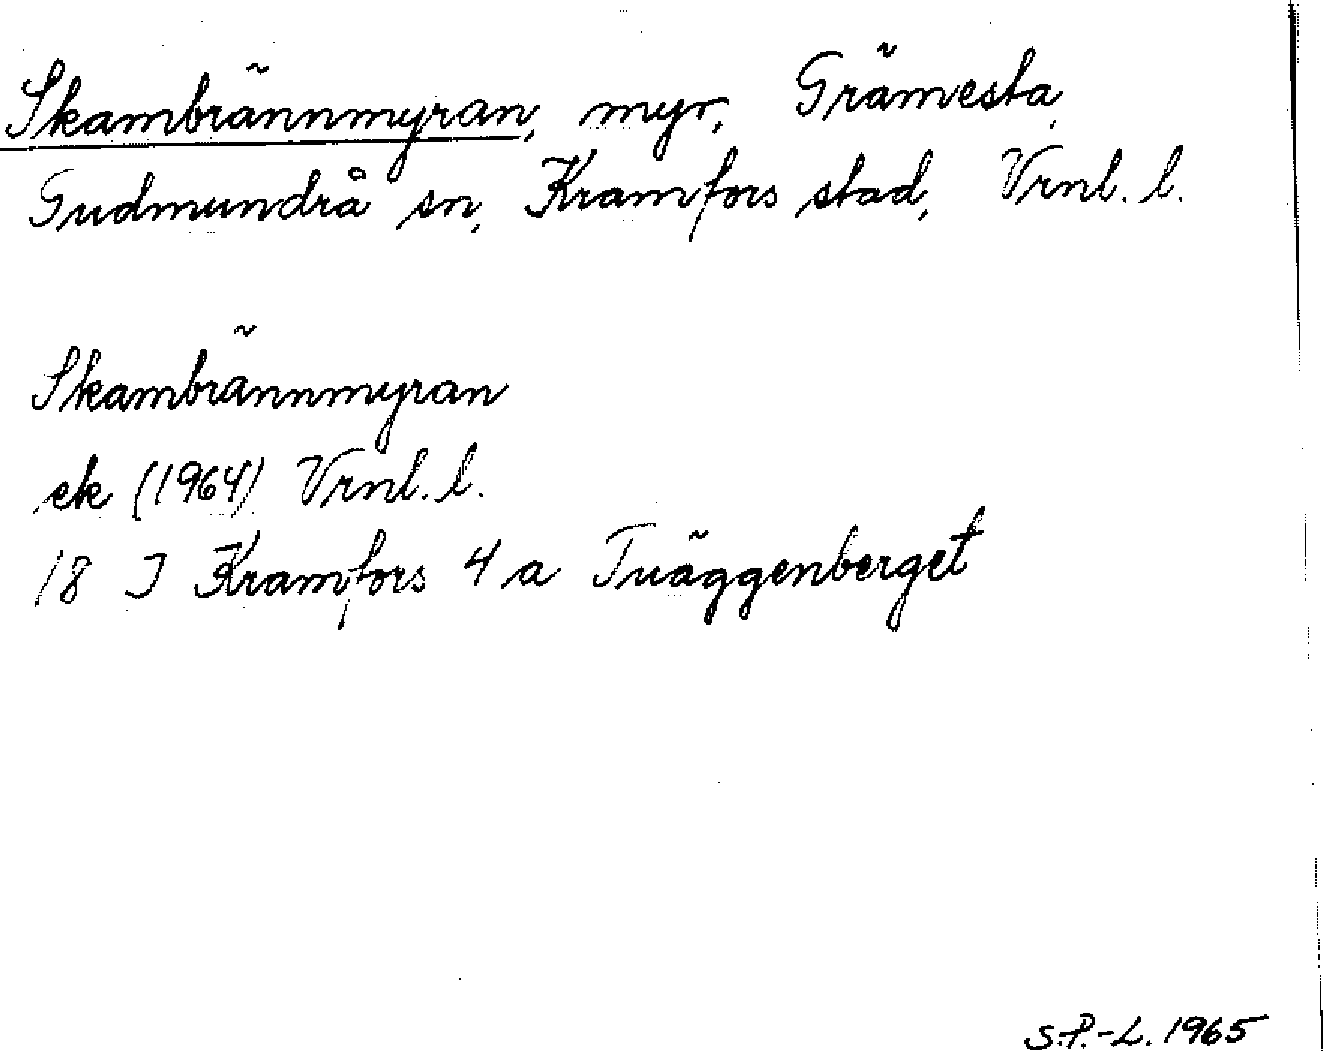 Skambrännmyran, myr, Grämesta,
Gudmundrå sn, Kramfors stad, Vrnl. l.
Skambrännmyran
ek (1964) Vrnl. l.
18 I Kramfors 4 a Tväggenberget
S.P.-L. 1965